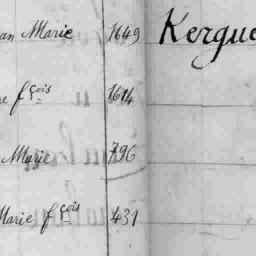 an Marie 1649 Kergue
e fçois 1614
Marie 796
Marie fçois 431